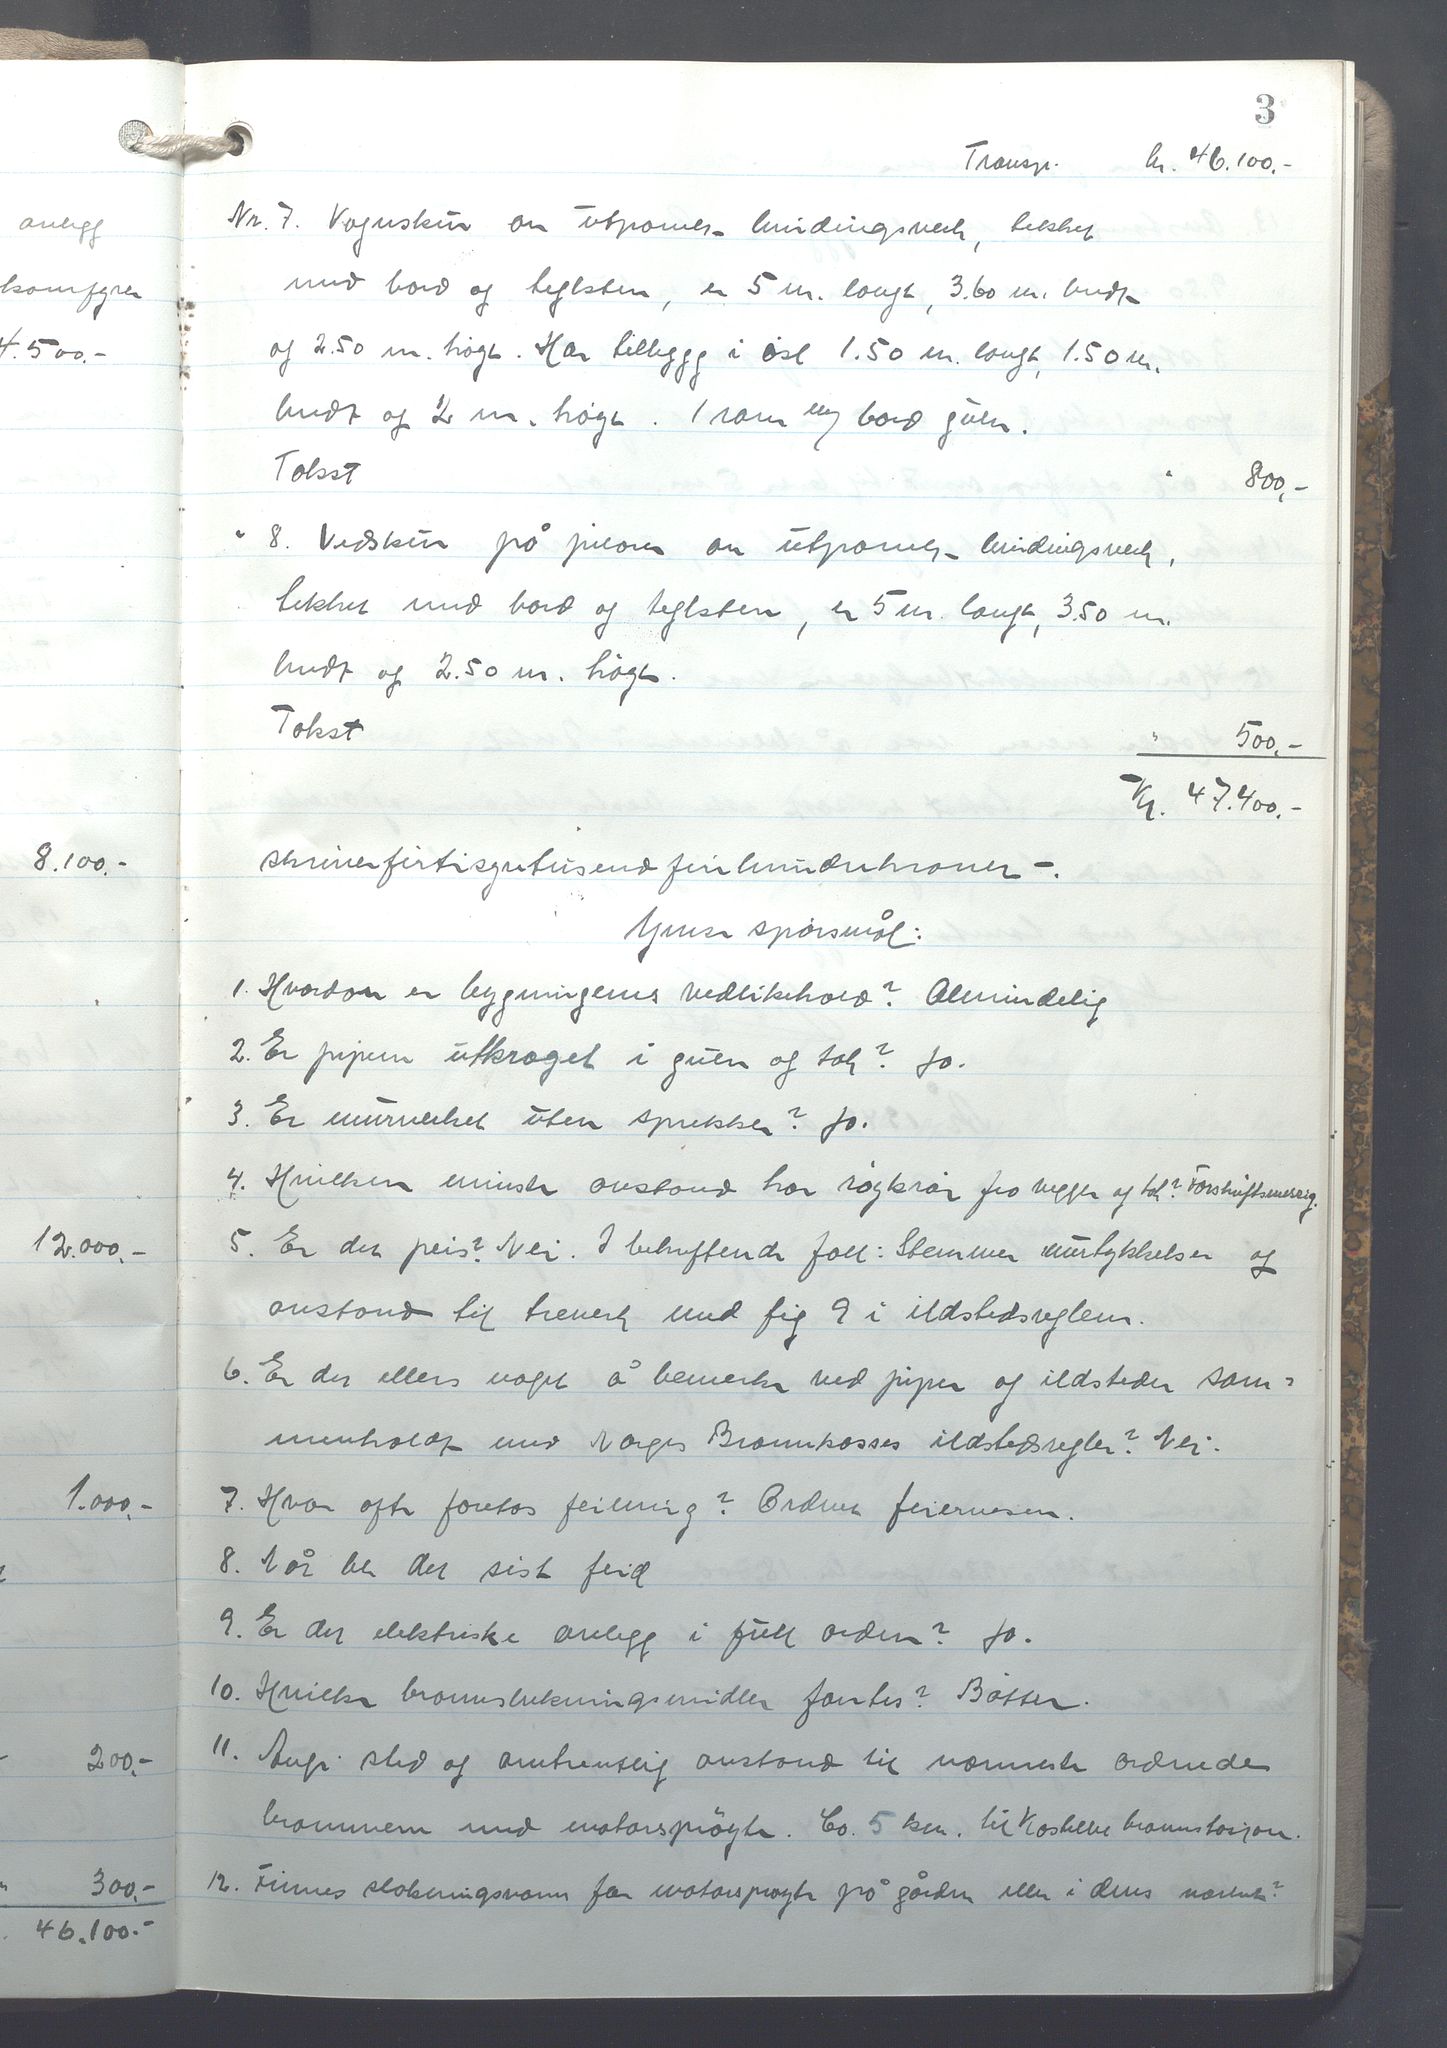 anlegg
komfyrer
4.500.-
8.100.-
12.000.-
1.000.-
200.-
300.-
46.100.-
3
Transp. kr. 46.100.-
Nr. 7. Vognskur av utpanelt bindingsverk, tekket
med bord og teglsten, er 5 m. langt, 3.60 m. bredt
og 2.50 m. högt. Har tilbygg i öst 1.50 m. langt, 1.50 m.
bredt og 2 m. högt. 1 rom m/ bord gulv.
Takst " 800,-
" 8. Vedskur på pilarer av utpanelt bindingsverk,
tekket med bord og teglsten, er 5 m. langt, 3.50 m.
bredt og 2.50 m. högt.
Takst " 500,-
Kr. 47.400,-
skriver förtisyvtusend fire hundre kroner -.
Ymse spörsmål:
1. Hvordan er bygningenes vedlikehold? Almindelig
2. Er pipen utkraget i gulv og tak? Ja.
3. Er murverket uten sprekker? Ja.
4. Hvilken minste avstand har rögkrör fra vegger og tak? Forskriftsmessig.
5. Er det peis? Nei. I bekreftende fall: Stemmer murtykkelser og
avstand til treverk med fig 9 i ildstedsreglene.
6. Er det ellers noget å bemerke ved piper og ildsteder sam=
menholdt med Norges Brannkasses ildstedsregler? Nei.
7. Hvor ofte foretas feiing? Ordnet feiervesen.
8. Når ble det sist feid
9. Er det elektriske anlegg i full orden? Ja.
10. Hvilke brannslukningsmidler fantes? Bötter.
11. Angi sted og omtrentlig avstand til nærmeste ordnede
brannvern med motorspröyte. Ca. 5 km. til brannstasjon.
12. Finnes slokningsvann for motorspröyte på gården eller i dens nærhet?